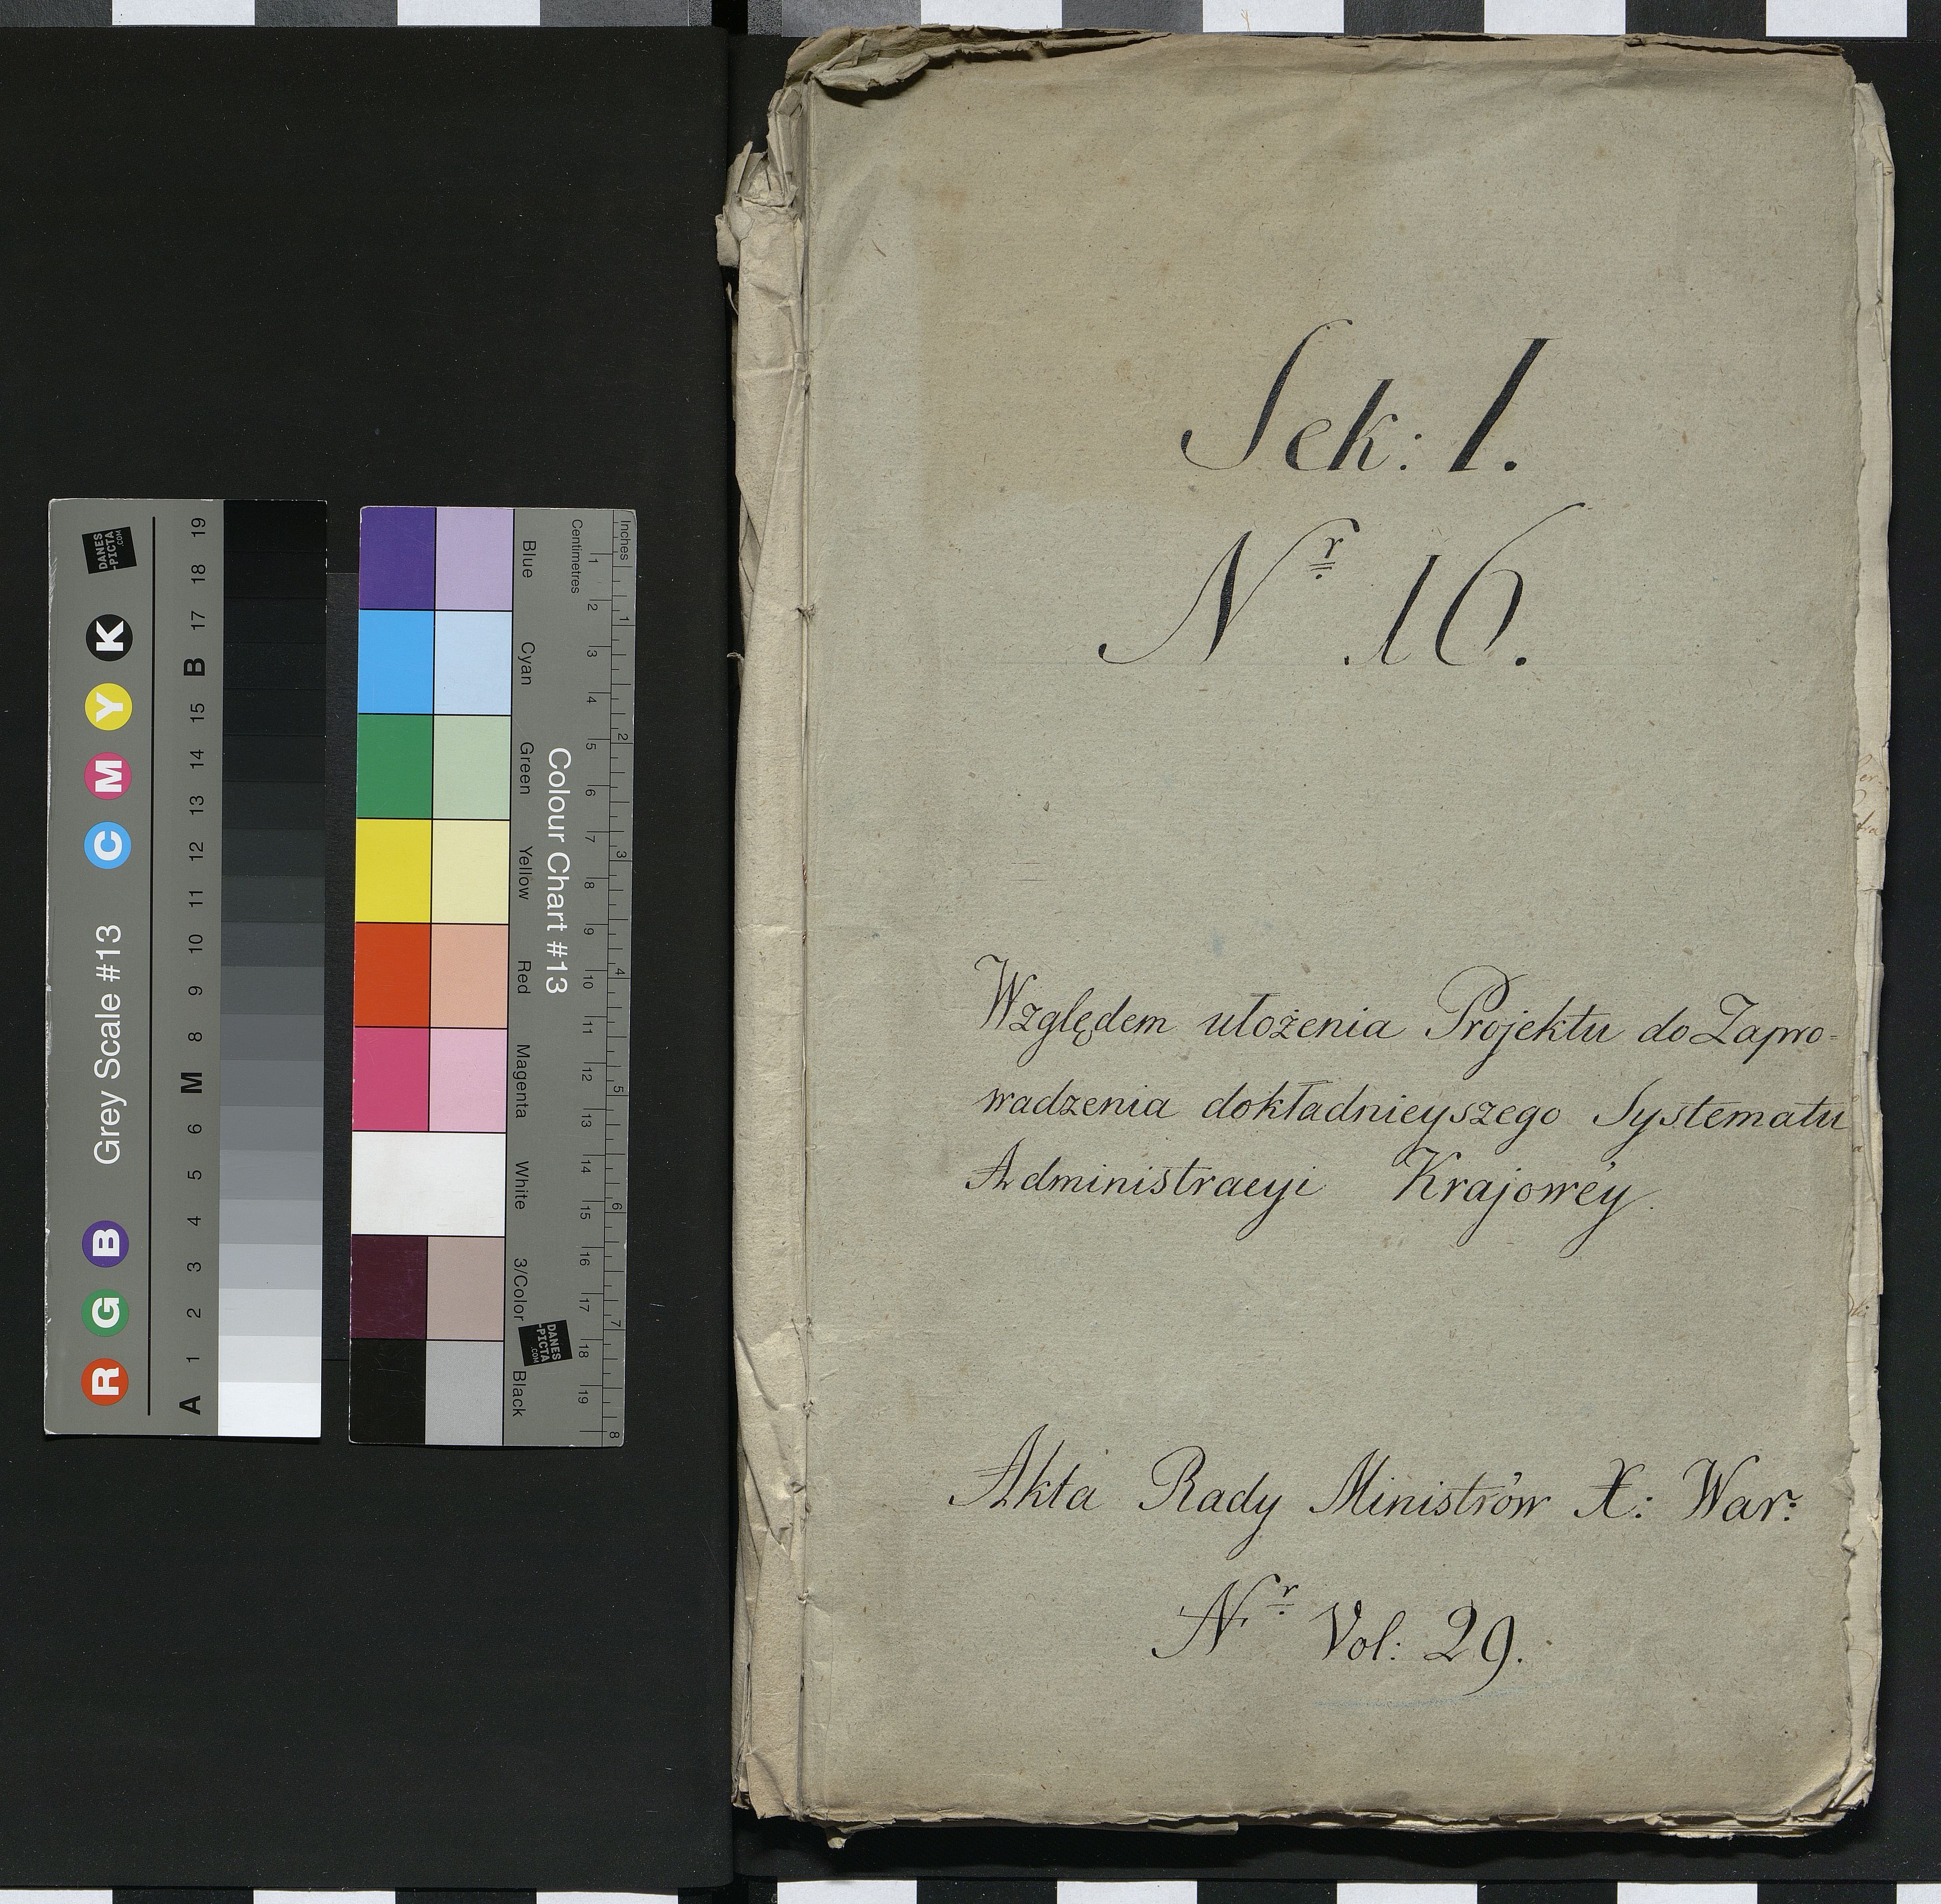 Sek: 1.
Nr 16.
Względem ułożenia Projektu do Zapro-
wadzenia dokładnieyszego Systematu
Administracyi Krajowéy.
Akta Rady Ministrów X: War:
Nr Vol: 29.
Grey Scale #13
R G B C M Y K
A 1 2 3 4 5 6 M 8 9 10 11 12 13 14 15 B 17 18 19
DANES
-PICTA
.COM
Colour Chart #13
Blue Cyan Green Yellow Red Magenta White 3/Color Black
Inches 1 2 3 4 5 6 7 8
Centimetres 1 2 3 4 5 6 7 8 9 10 11 12 13 14 15 16 17 18 19
DANES
-PICTA
.COM